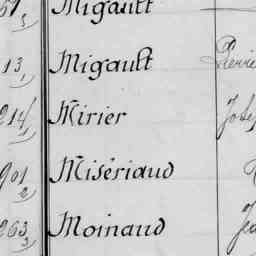 Migault
13 Migault Pierre
214 Mirier
901 Misériaud
263 Moinaud